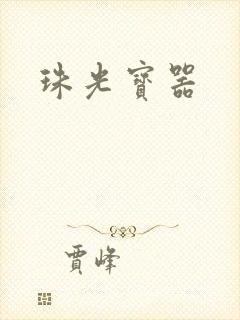 珠光寶器
賈峰